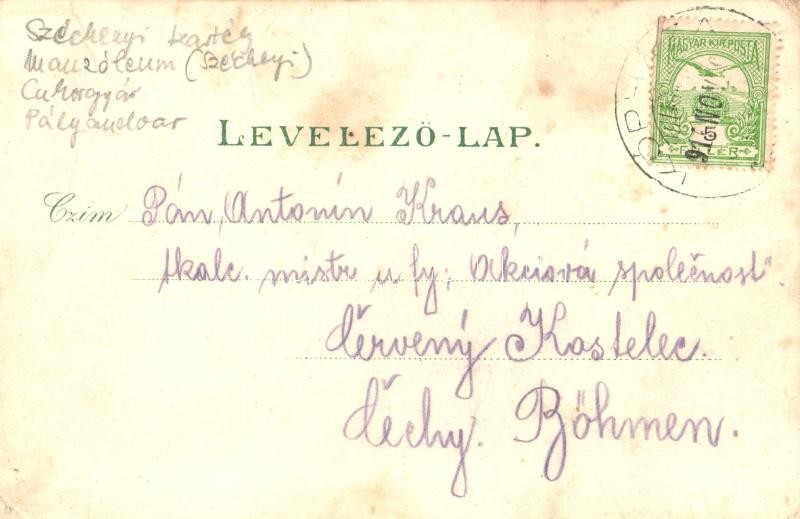 Széchenyi kastély
Mauzóleum (Széchenyi)
Cukorgyár
Pályaudvar
LEVELEZŐ-LAP.
MAGYAR KIR. POSTA
916 NOV
FILLÉR
Czim Pán, Antonín Kraus,
tkalc. mistr u fy; Akciová společnost".
Červený Kostelec.
Čechy. Böhmen.